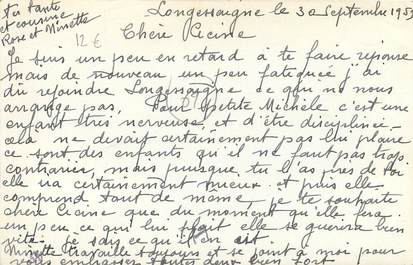 Ta tante
et cousine
Rose et Minette
12 €
Longessaigne le 30 Septembre 195
Chère Cicine
Je suis un peu en retard à te faire réponse
mais de nouveau un peu fatiguée j'ai
dû rejoindre Longessaigne ce qui ne nous
arrange pas. Petite Michèle c'est une
enfant très nerveuse et d'être disciplinée
cela ne devait certainement pas lui plaire
ce sont des enfants qu'il ne faut pas trop
contrariés, mais puisque tu l'as près de toi
elle va certainement mieux et puis elle
comprend tout de même, je te souhaite
chère Cicine que du moment qu'elle fera
un peu ce qui lui plait elle se guérira bien
vite. Je sais ce qu'il en est.
Minette travaille toujours et se joint à moi pour
vous embrasser toutes deux bien fort